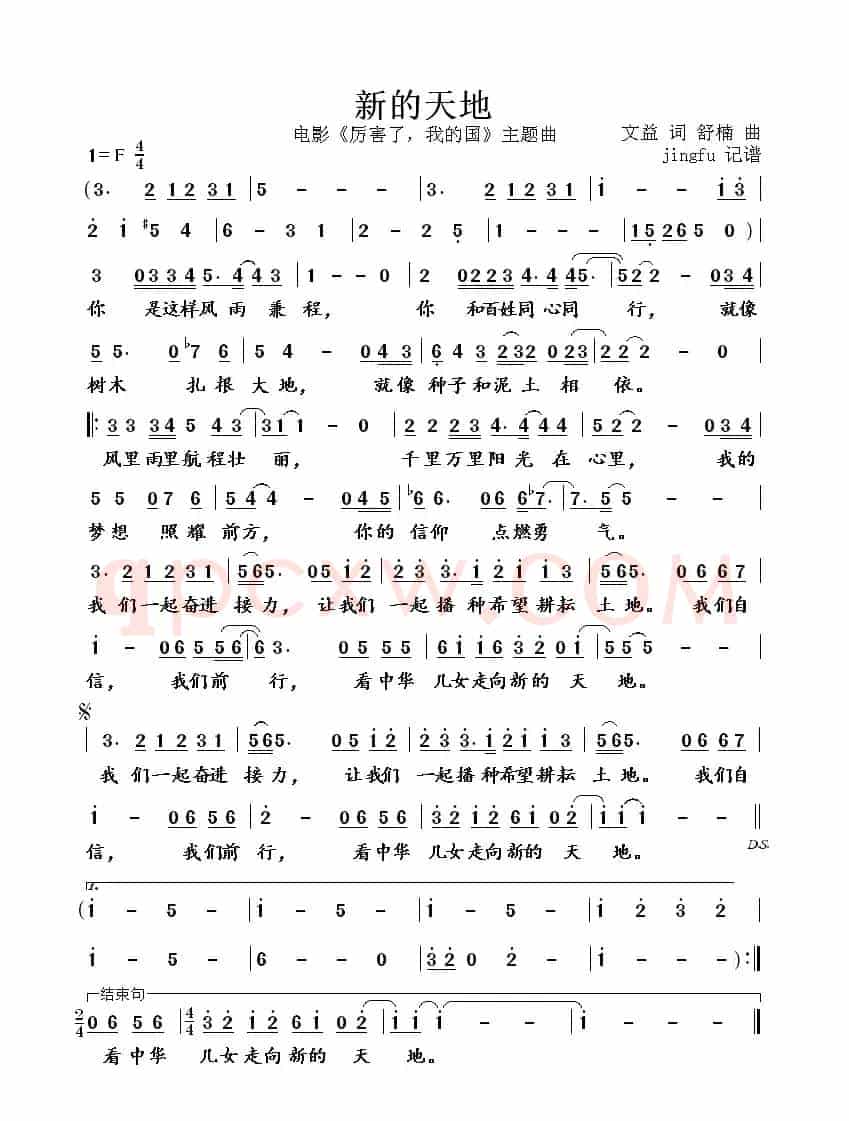 新的天地
电影《厉害了，我的国》主题曲 文益 词 舒楠 曲
1=F 4/4 jingfu 记谱
(3. 2 12 31 | 5 - - - | 3. 2 12 31 | i - - i3 |
2 i #5 4 | 6 - 3 1 | 2 - 2 5 | 1 - - - | 15265 0 ) |
3 0334 5. 4 4 3 | 1 - - 0 | 2 0223 4. 4 45. | 522 - 034 |
你 是这样风 雨 兼 程， 你 和百姓同心同 行， 就像
5 5. 0 b7 6 | 5 4 - 043 | 6 4 3 232 023 | 2 2 2 - 0 |
树木 扎根大地， 就像种子和泥土相 依。
||: 33 345 43 | 311 - 0 | 22 234. 44 | 522 - 034 |
风里雨里航程壮 丽， 千里万里阳光在心里， 我的
5 5 07 6 | 544 - 045 | b6 6. 06 6 b7. | 7. 5 5 - - |
梦想 照耀前方， 你的信仰 点燃勇 气。
qpcxw.com
3. 21231 | 565. 05 i2 | 23 3. i2 i3 | 565. 06 67 |
我们一起奋进接力， 让我们一起播种希望耕耘土地。 我们自
i - 06556 | 6 3. 05 55 | 6i i6 32 0i | 5 5 5 - - |
信， 我们前 行， 看中华 儿女走向新的天 地。
| 3. 21231 | 565. 05 i2 | 23 3. i2 i3 | 565. 06 67 |
我们一起奋进接力， 让我们一起播种希望耕耘土地。 我们自
i - 06 56 | 2 - 06 56 | 32 i2 6i 02 | i i i - - ||
D.S.
信， 我们前行， 看中华 儿女走向新的天 地。
1.
(i - 5 - | i - 5 - | i - 5 - | i 2 3 2 |
i - 5 - | 6 - - 0 | 32 0 2 - | i - - -) :||
结束句
2/4 06 56 | 4/4 32 i2 6i 02 | i i i - - | i - - - ||
看中华 儿女走向新的天 地。